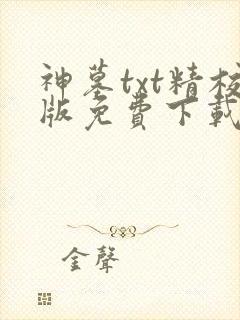 神墓txt精校
版免費下載
金聲